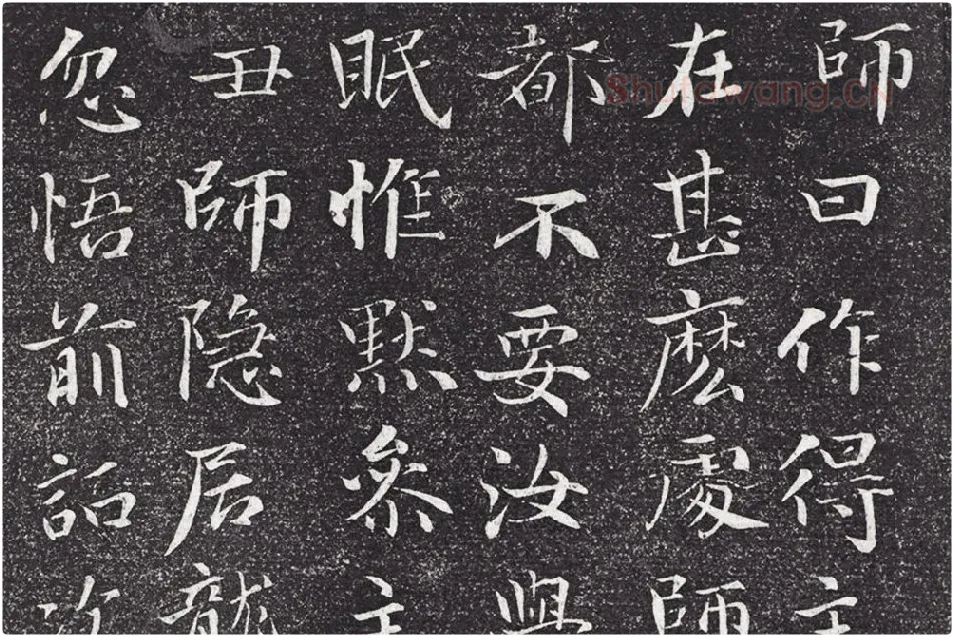 師曰作得主
在甚麽處師
都不要汝學
眠惟默參主
丑師隐居龍
忽悟前話
Shufawang.CN